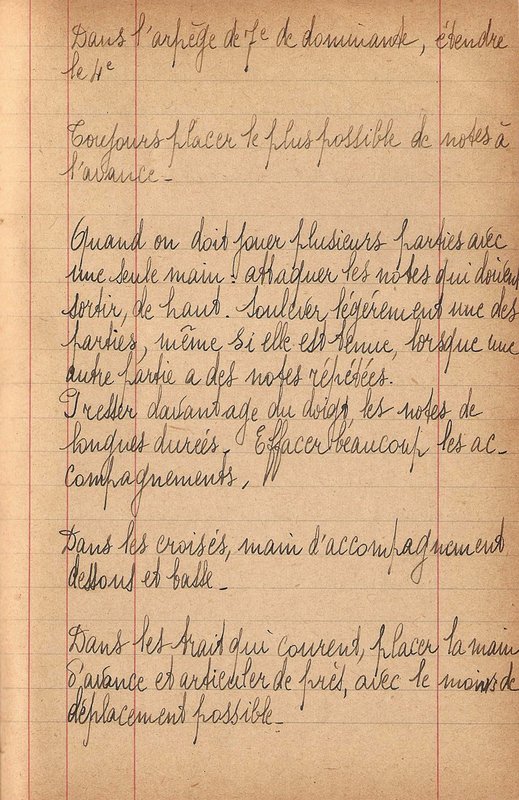 Dans l'arpège de 7e de dominante, étendre
le 4e
Toujours placer le plus possible de notes à
l'avance -
Quand on doit jouer plusieurs parties avec
une seule main : attaquer les notes qui doivent
sortir, de haut. Soulever légèrement une des
parties, même si elle est tenue, lorsque une
autre partie a des notes répétées.
Presser davantage du doigt les notes de
longues durées. Effacer beaucoup les ac-
compagnements.
Dans les croisés, main d'accompagnement
dessous et basse -
Dans les trait qui courent, placer la main
d'avance et articuler de près, avec le moins de
déplacement possible -